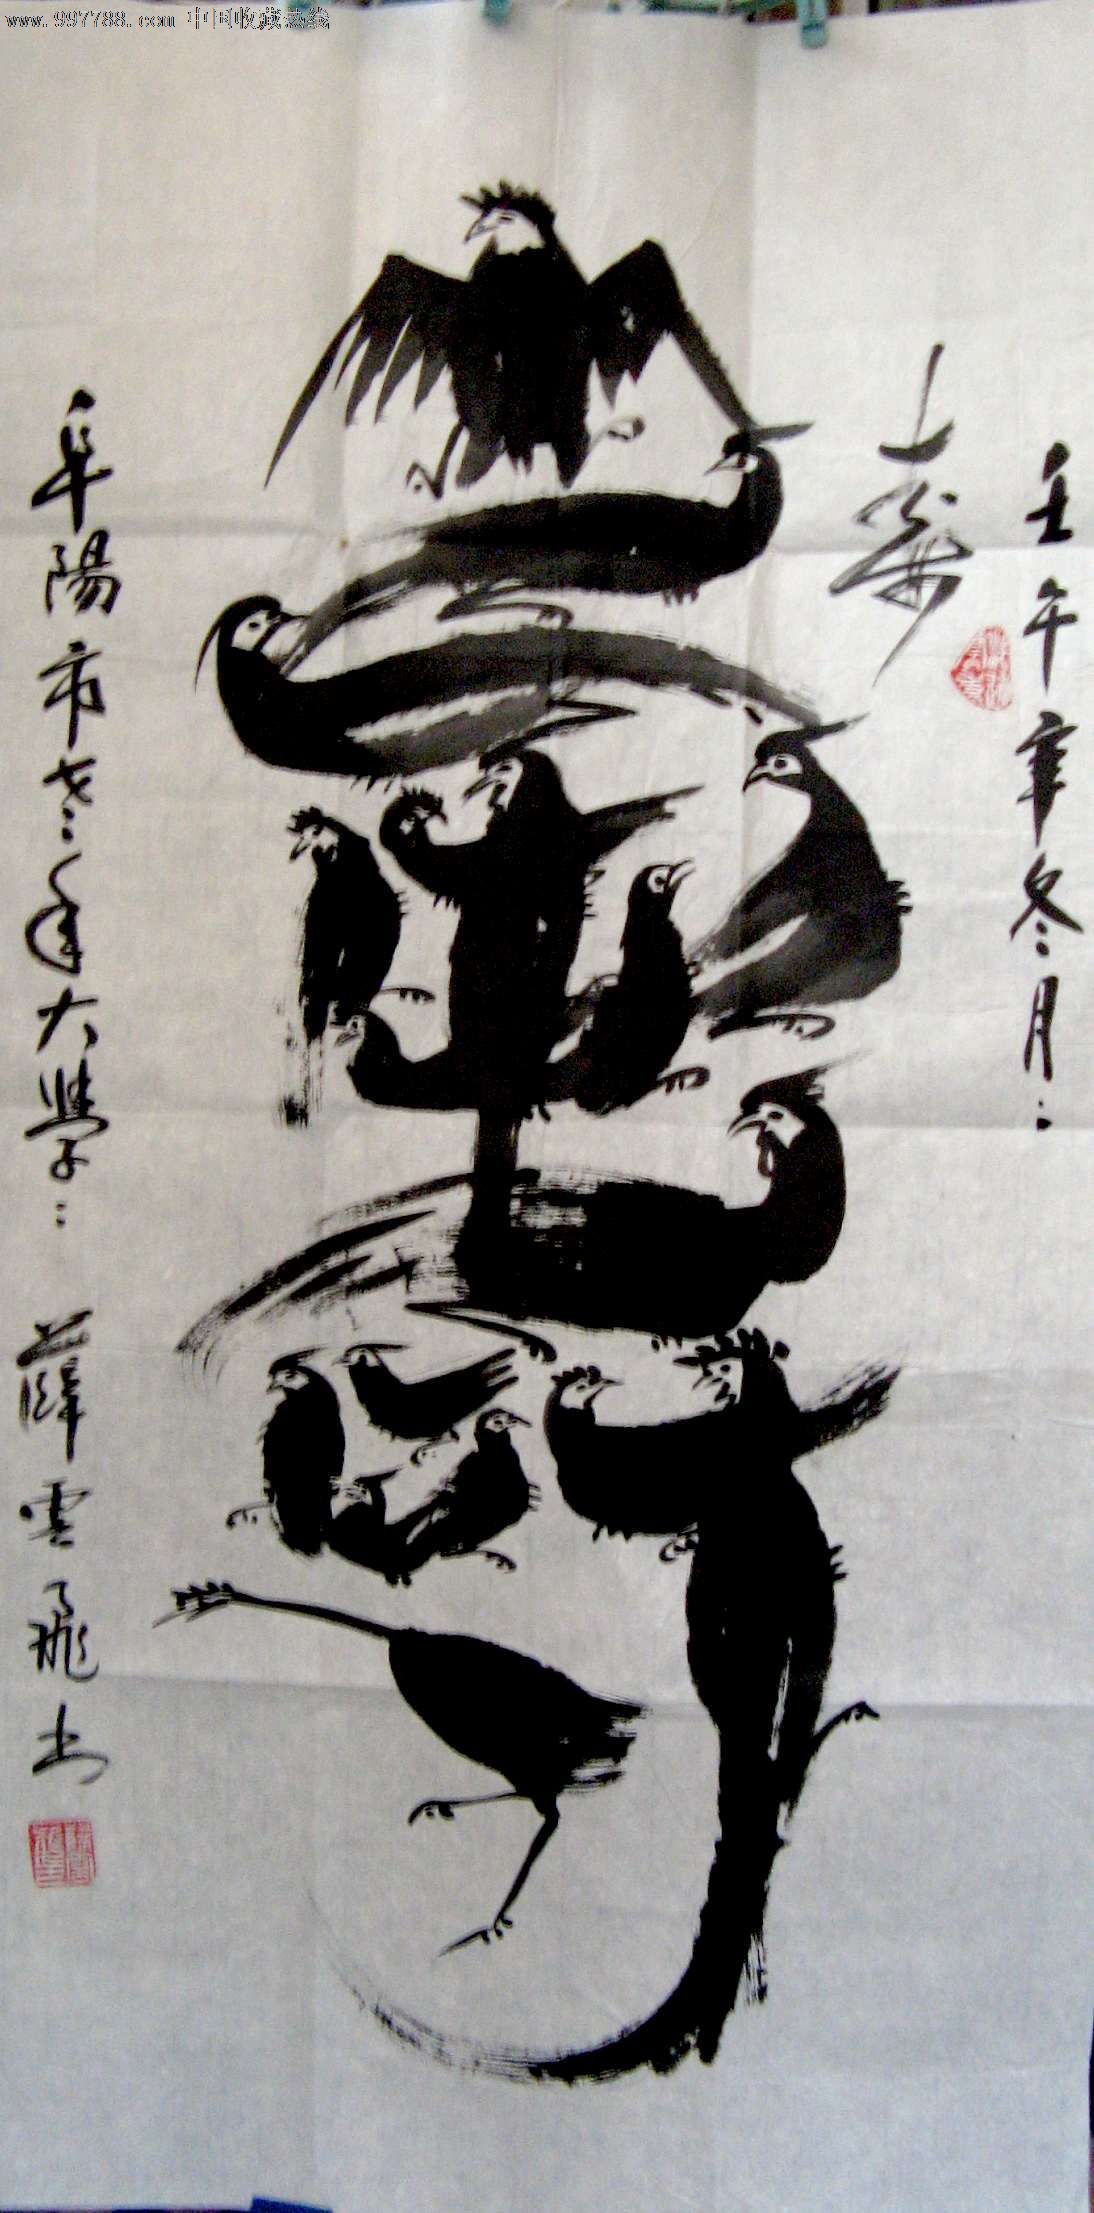 www.997788.com 中国收藏热线
壬午年冬月
上寿
阜陽市老年大學
薛雲飛书